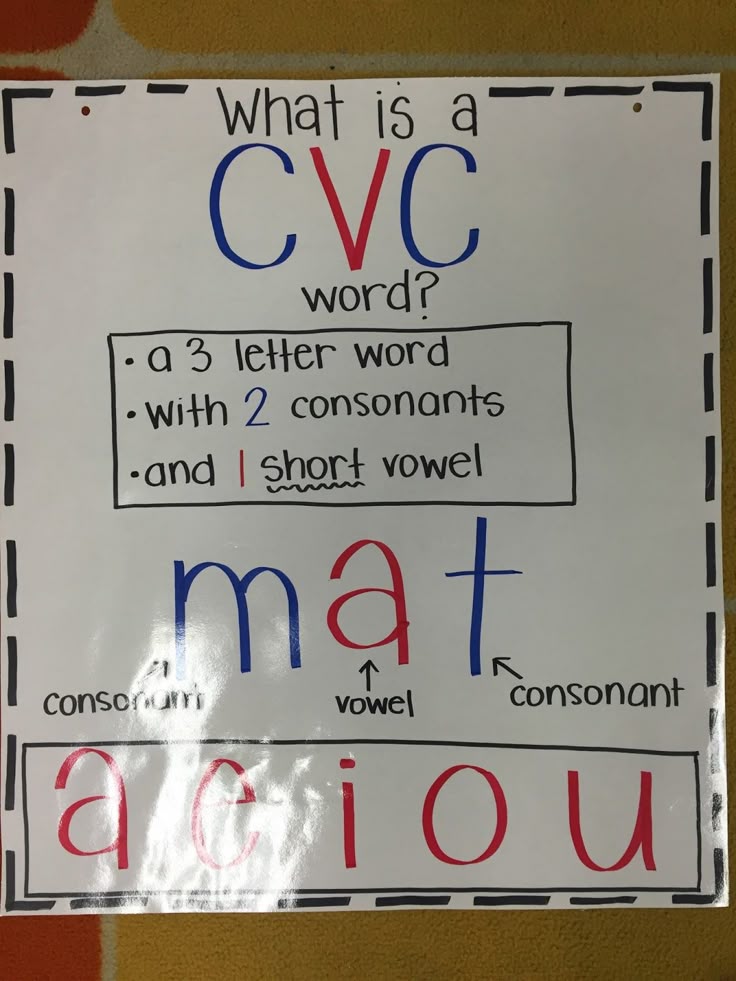 What is a
CVC
word?
• a 3 letter word
• with 2 consonants
• and 1 short vowel
mat
consonant vowel consonant
a e i o u